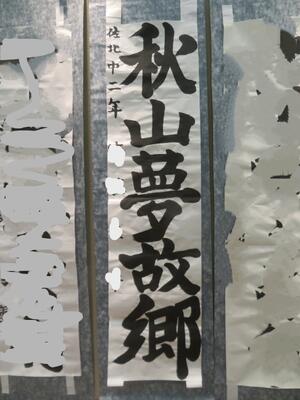 秋山夢故郷
佐北中二年